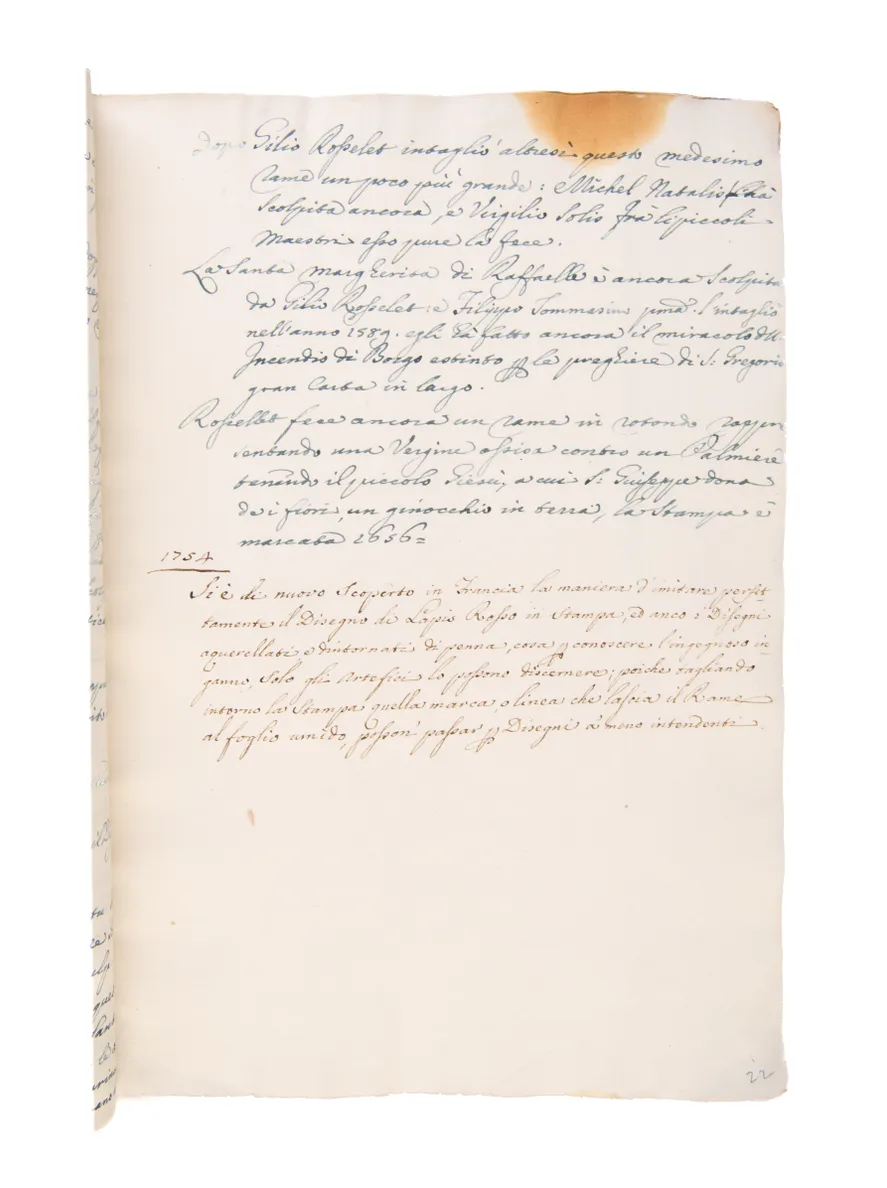 Dopo Gilio Rosselet intagliò altresì questo medesimo
rame un poco più grande: e Michel Natalis l'hà
Scolpita ancora, e Virgilio Solis frà li piccoli
Maestri esso pure la fece.
La Santa Margherita di Raffaelle è ancora Scolpita
da Gilio Rosselet: e Filippo Tommasino pma. l'intagliò
nell'anno 1589. egli hà fatto ancora il miracolo dell'
Incendio di Borgo estinto p le preghiere di S: Gregorio
gran Carta in largo.
Rossellet fece ancora un rame in rotondo rappre
sentando una Vergine assisa contro un Palmiere
tenendo il piccolo Giesù, a cui S: Guiseppe dona
de i fiori, un ginocchio in terra, la Stampa è
marcata 1656=
1754
Si è di nuovo Scoperto in Francia la maniera d'imitare perfet-
tamente il Disegno di Lapis Rosso in Stampa, ed anco i Disegni
aquerellati e dintornati di penna, cosa p conoscere l'ingegnoso in-
ganno, Solo gli Artefici lo possono discernere; poiche tagliando
intorno la Stampa quella marca, o linea che lascia il Rame
al foglio umido, posson' passar p Disegni à meno intendenti.
22